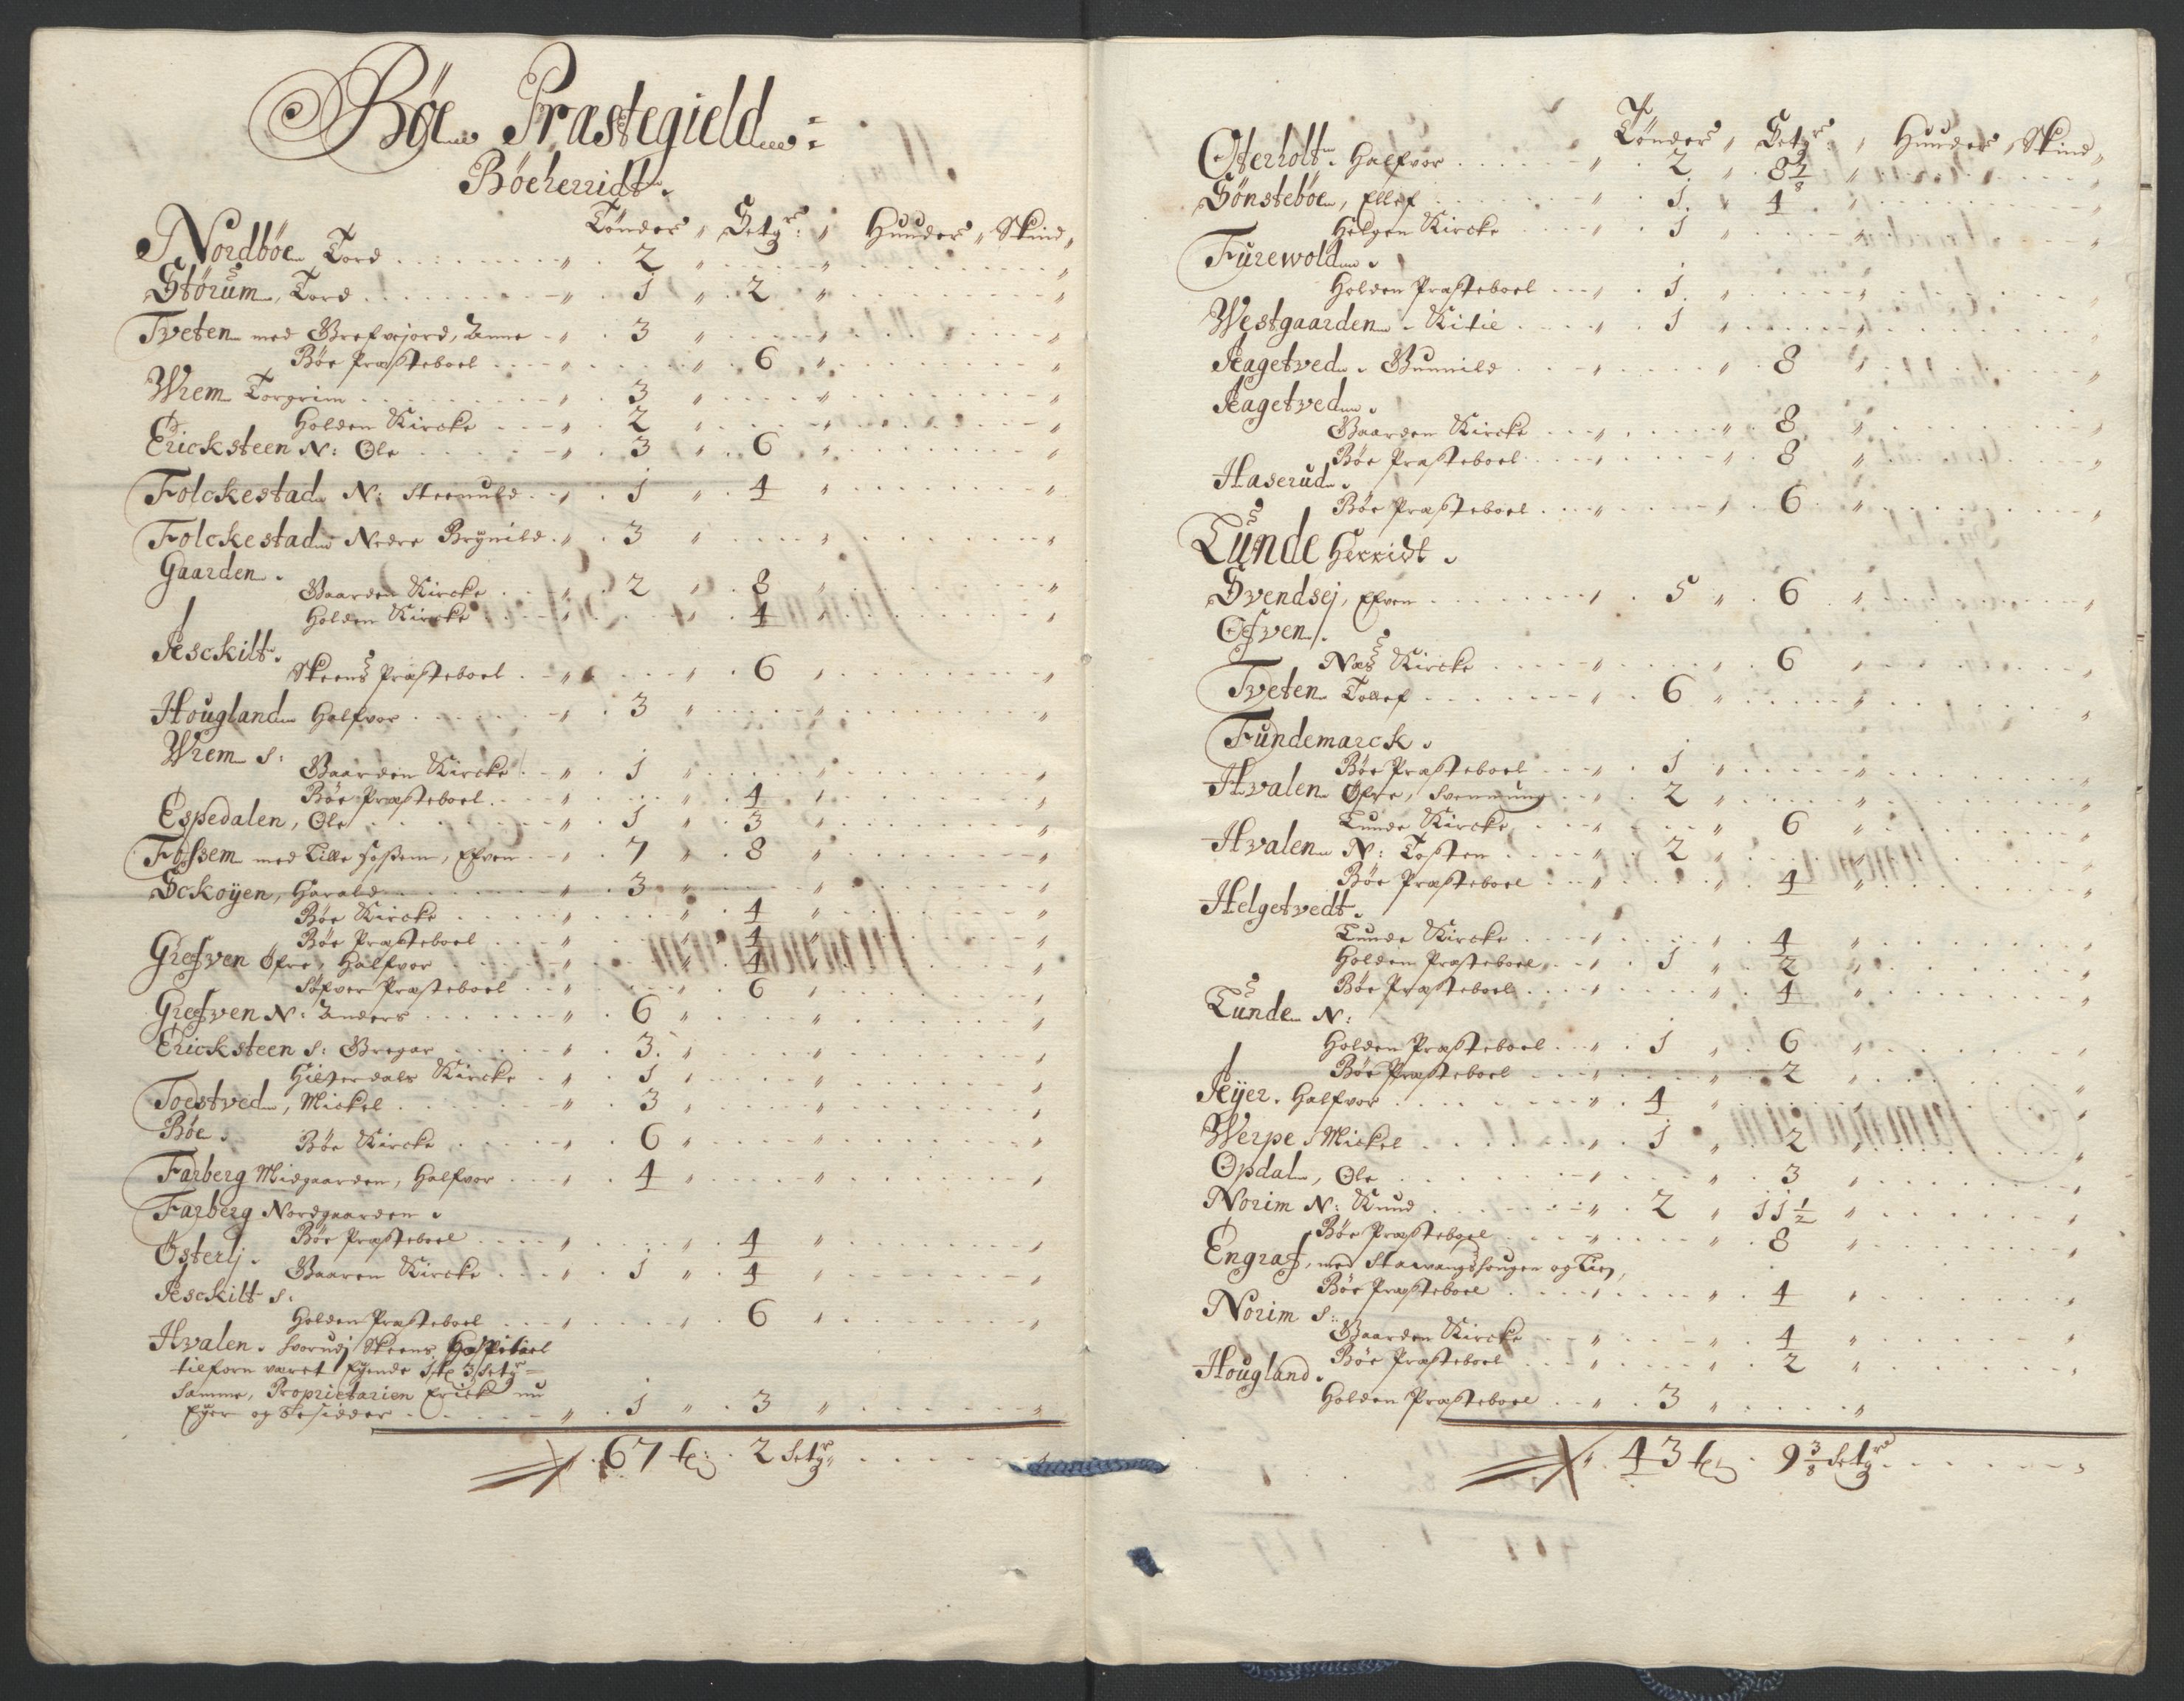 Bøe Præstegield:
Bøeherridt.
Tønder, Setgr: Huuder, Skind,
Nordbøe Tord 2
Størum, Tord 1 2
Tveten med Grefvejord, Anne 3
Bøe Præsteboel 6
Wrem Torgrim 3
Holden Kircke 2
Ericksteen N: Ole 3 6
Folckestad N: Steenuld 1 4
Folckestad Nedre Brÿnild 3
Gaarden.
Gaarden Kircke 2 8
Holden Kircke 4
Jesckilt.
Skeens Præsteboel 6
Hougland Halfvor 3
Wrem S:
Gaarden Kircke 1
Bøe Præsteboel 4
Espedalen, Ole 1 3
Foßem med Lille Foßem, Efven 7 8
Sckoÿen, Harald 3
Bøe Kircke 4
Bøe Præsteboel 4
Grefven Øfre, Halfvor 4
Søfver Præsteboel 6
Grefven N: Anders 6
Ericksteen S: Gregar 3.
Hitterdals Kircke 1
Toestved, Mickel 3
Bøe.
Bøe Kircke 6
Farberg Midgaarden, Halfvor 4
Farberg Nordgaarden.
Bøe Præsteboel 4
Østerlj.
Gaaren Kircke 1 4
Jesckilt S:
Holden Præsteboel 6
Hvalen. Skeens Hospitael
tilforn været Eÿende 1 tn 3 Setgr
Samme, Proprietarien Erick nu
Eÿer og besidder 1 3
67 tn: 2 Setgr
Tønder, Setgr: Huuder, Skind,
Oterholt. Halfvor 2 8 1/8
Sønstebøe, Ellef 1 4
Helgen Kircke 1
Furewold.
Holden Præsteboel 1
Westgaarden. Kitil 1
Jagetved. Gunnild 8
Jagetved.
Gaarden Kircke 8
Bøe Præsteboel 8
Haserud.
Bøe Præsteboel 6
Lunde Herridt.
Svendsej, Efven 5 6
Ofven.
Næs Kircke 6
Tveten Tollef 6
Fundemarck.
Bøe Præsteboel 1
Hvalen Øfre, Svennung 2
Lunde Kircke 6
Hvalen N: Tosten 2
Bøe Præsteboel 4
Helgetvedt.
Lunde Kircke 4
Holden Præsteboel 1 2
Bøe Præsteboel 4
Lunde N:
Holden Præsteboel 1 6
Bøe Præsteboel 2
Jeÿer. Halfvor 4
Werpe, Mickel 1 2
Opdal, Ole 3
Norim N: Knud 2 11 1/2
Bøe Præsteboel 8
Engraf, med Stavangshougen og Lien,
Bøe Præsteboel 4
Norim S:
Gaarden Kircke 4
Bøe Præsteboel 2
Hougland.
Holden Præsteboel 3
43 tn 9 3/8 Setgr